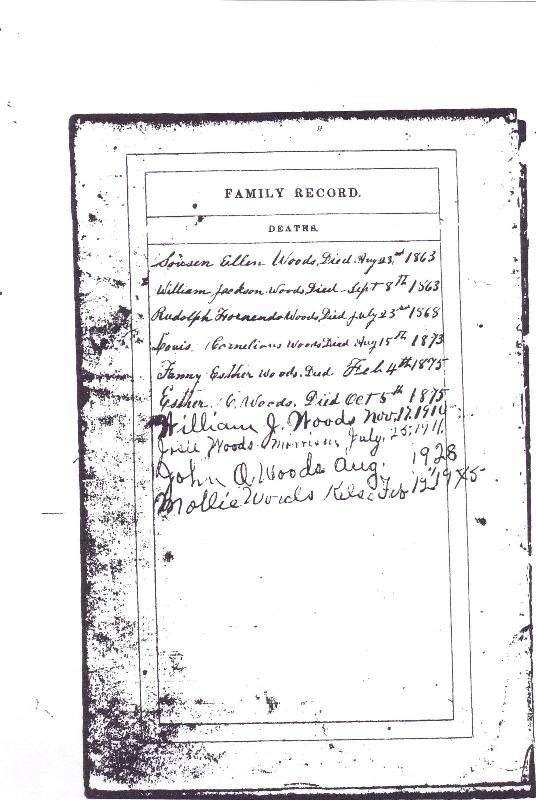 FAMILY RECORD.
DEATHS.
Ellen Woods, Died Aug 23rd 1863
William Jackson Woods, Died Sept 8th 1863
Rudolph Fornando Woods, Died July 23rd 1868
Louis Cornelious Woods Died Aug 15th 1873
Fanny Esther Woods. Died Feb. 4th 1875
Esther C. Woods. Died Oct 5th 1875
William J. Woods Nov. 17. 1910
Josie Woods July. 25, 1911
John A. Woods Aug. 1928
Mollie Woods Feb 12" 1945